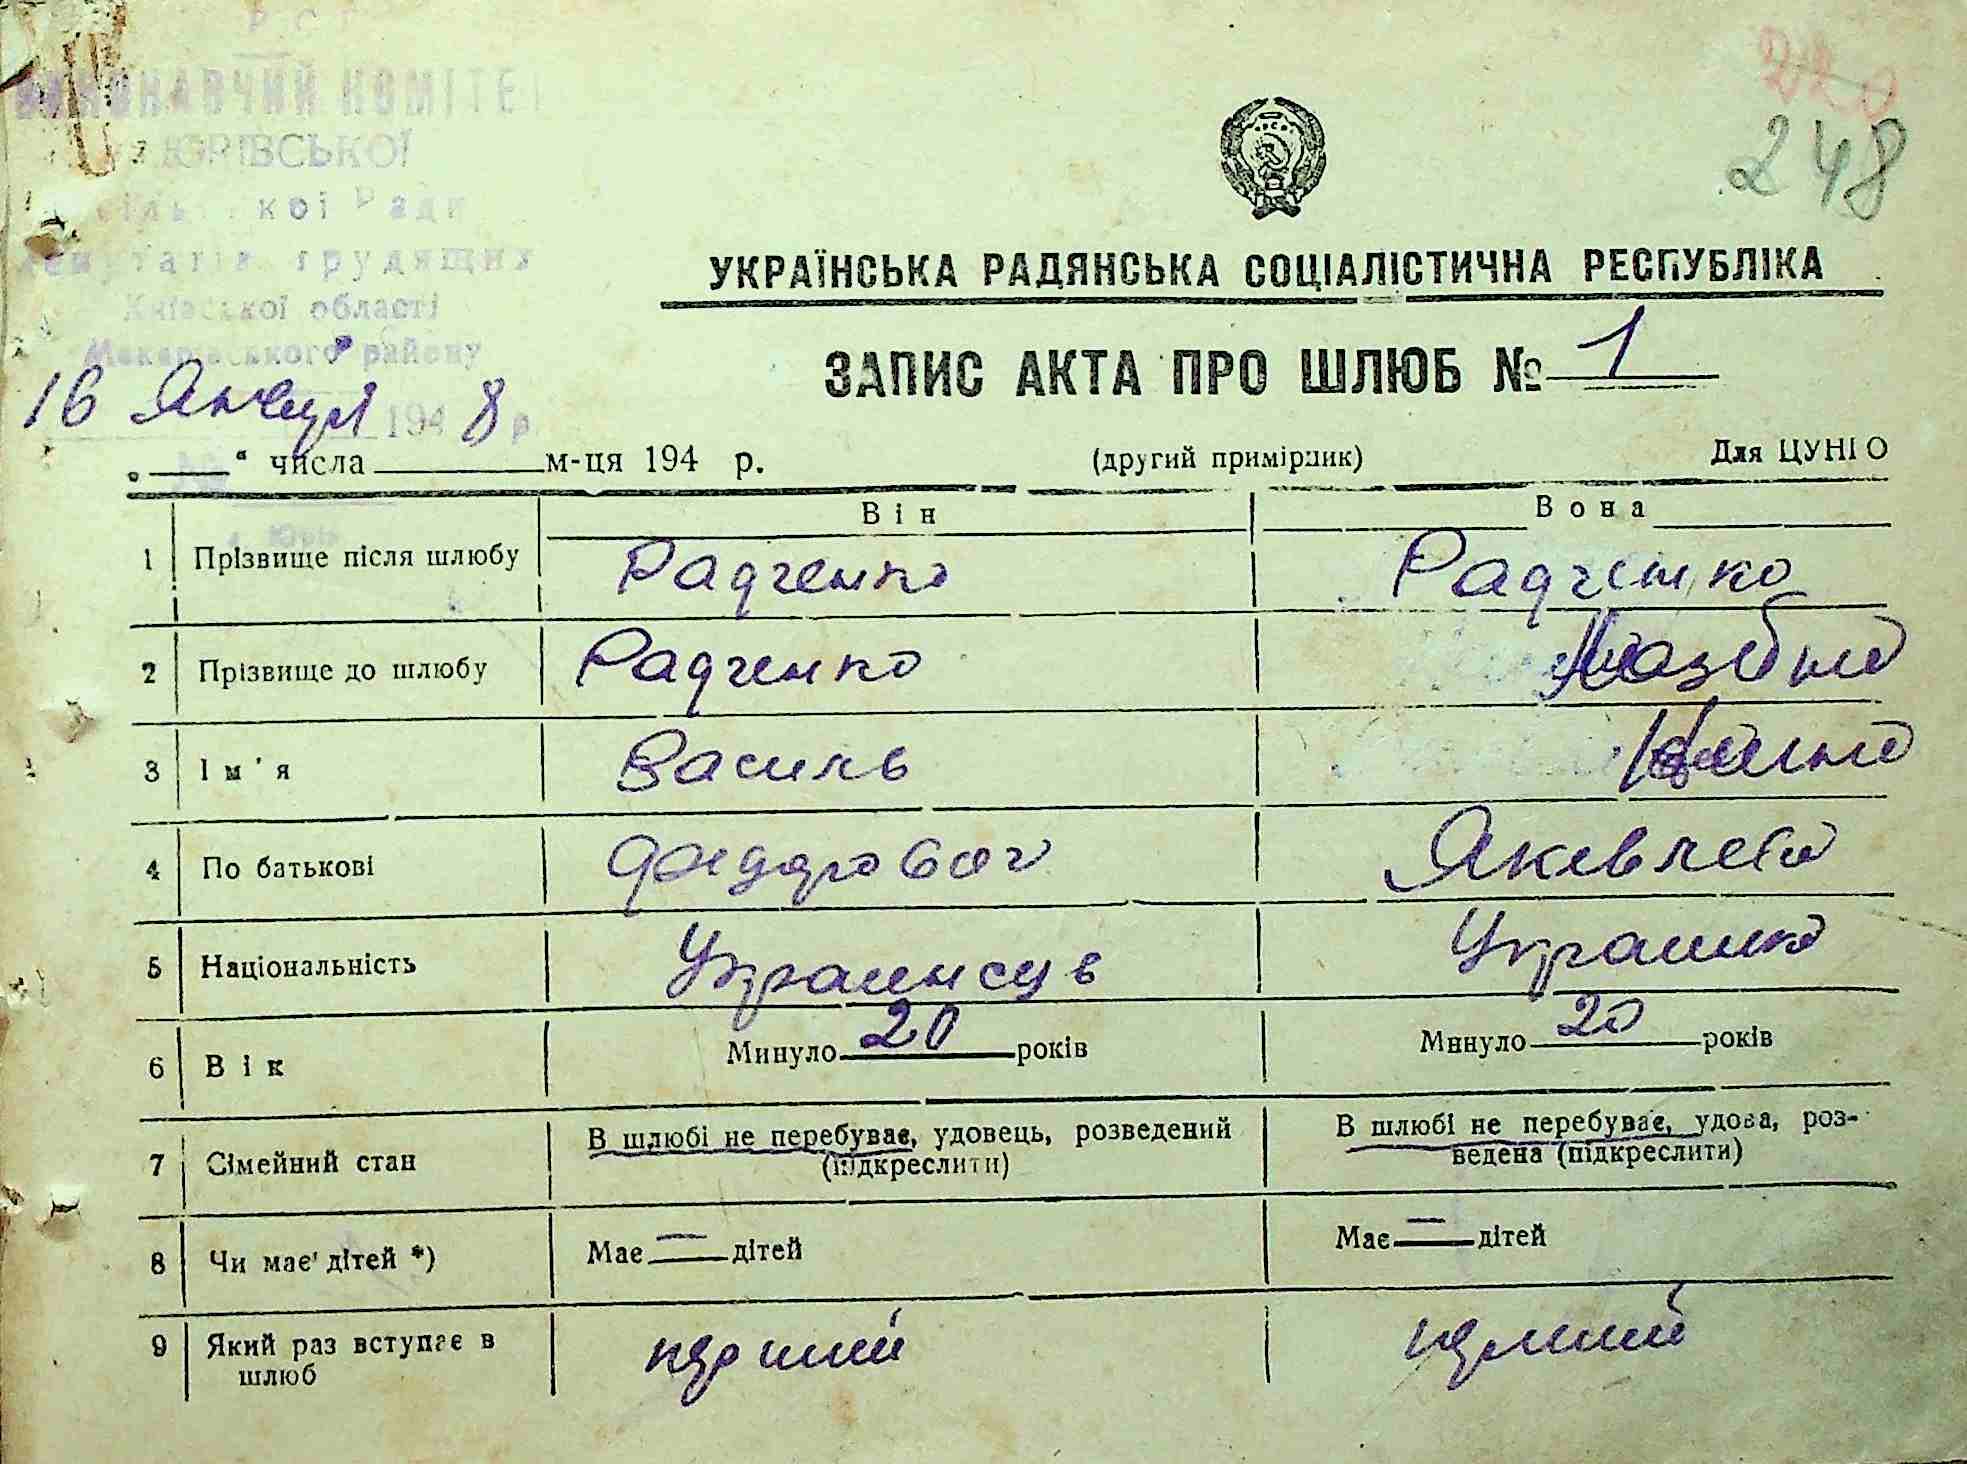 Р С Р
ВИКОНАВЧИЙ КОМІТЕТ
ЮРІВСЬКОЇ
сільської Ради
депутатів трудящих
Київської області
Макарівського району
220
248
УКРАЇНСЬКА РАДЯНСЬКА СОЦІАЛІСТИЧНА РЕСПУБЛІКА
ЗАПИС АКТА ПРО ШЛЮБ № 1
16 Января 1948 р.
„ “ числа м-ця 194 р. (другий примірник) Для ЦУНГО
Він Вона
1 Прізвище після шлюбу Радченко Радченко
2 Прізвище до шлюбу Радченко
3 Ім'я Василь
4 По батькові Яківлевна
5 Національність Украинець Украинка
6 Вік Минуло 20 років Минуло 20 років
7 Сімейний стан В шлюбі не перебуває, удовець, розведений (підкреслити) В шлюбі не перебуває, удова, роз-
ведена (підкреслити)
8 Чи має дітей *) Має — дітей Має — дітей
9 Який раз вступає в шлюб перший перший